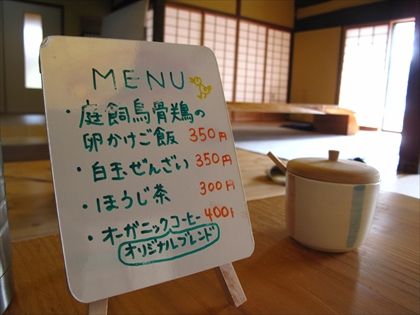 MENU
・庭飼烏骨鶏の
卵かけご飯 350円
・白玉ぜんざい 350円
・ほうじ茶 300円
・オーガニックコーヒー 400円
オリジナルブレンド